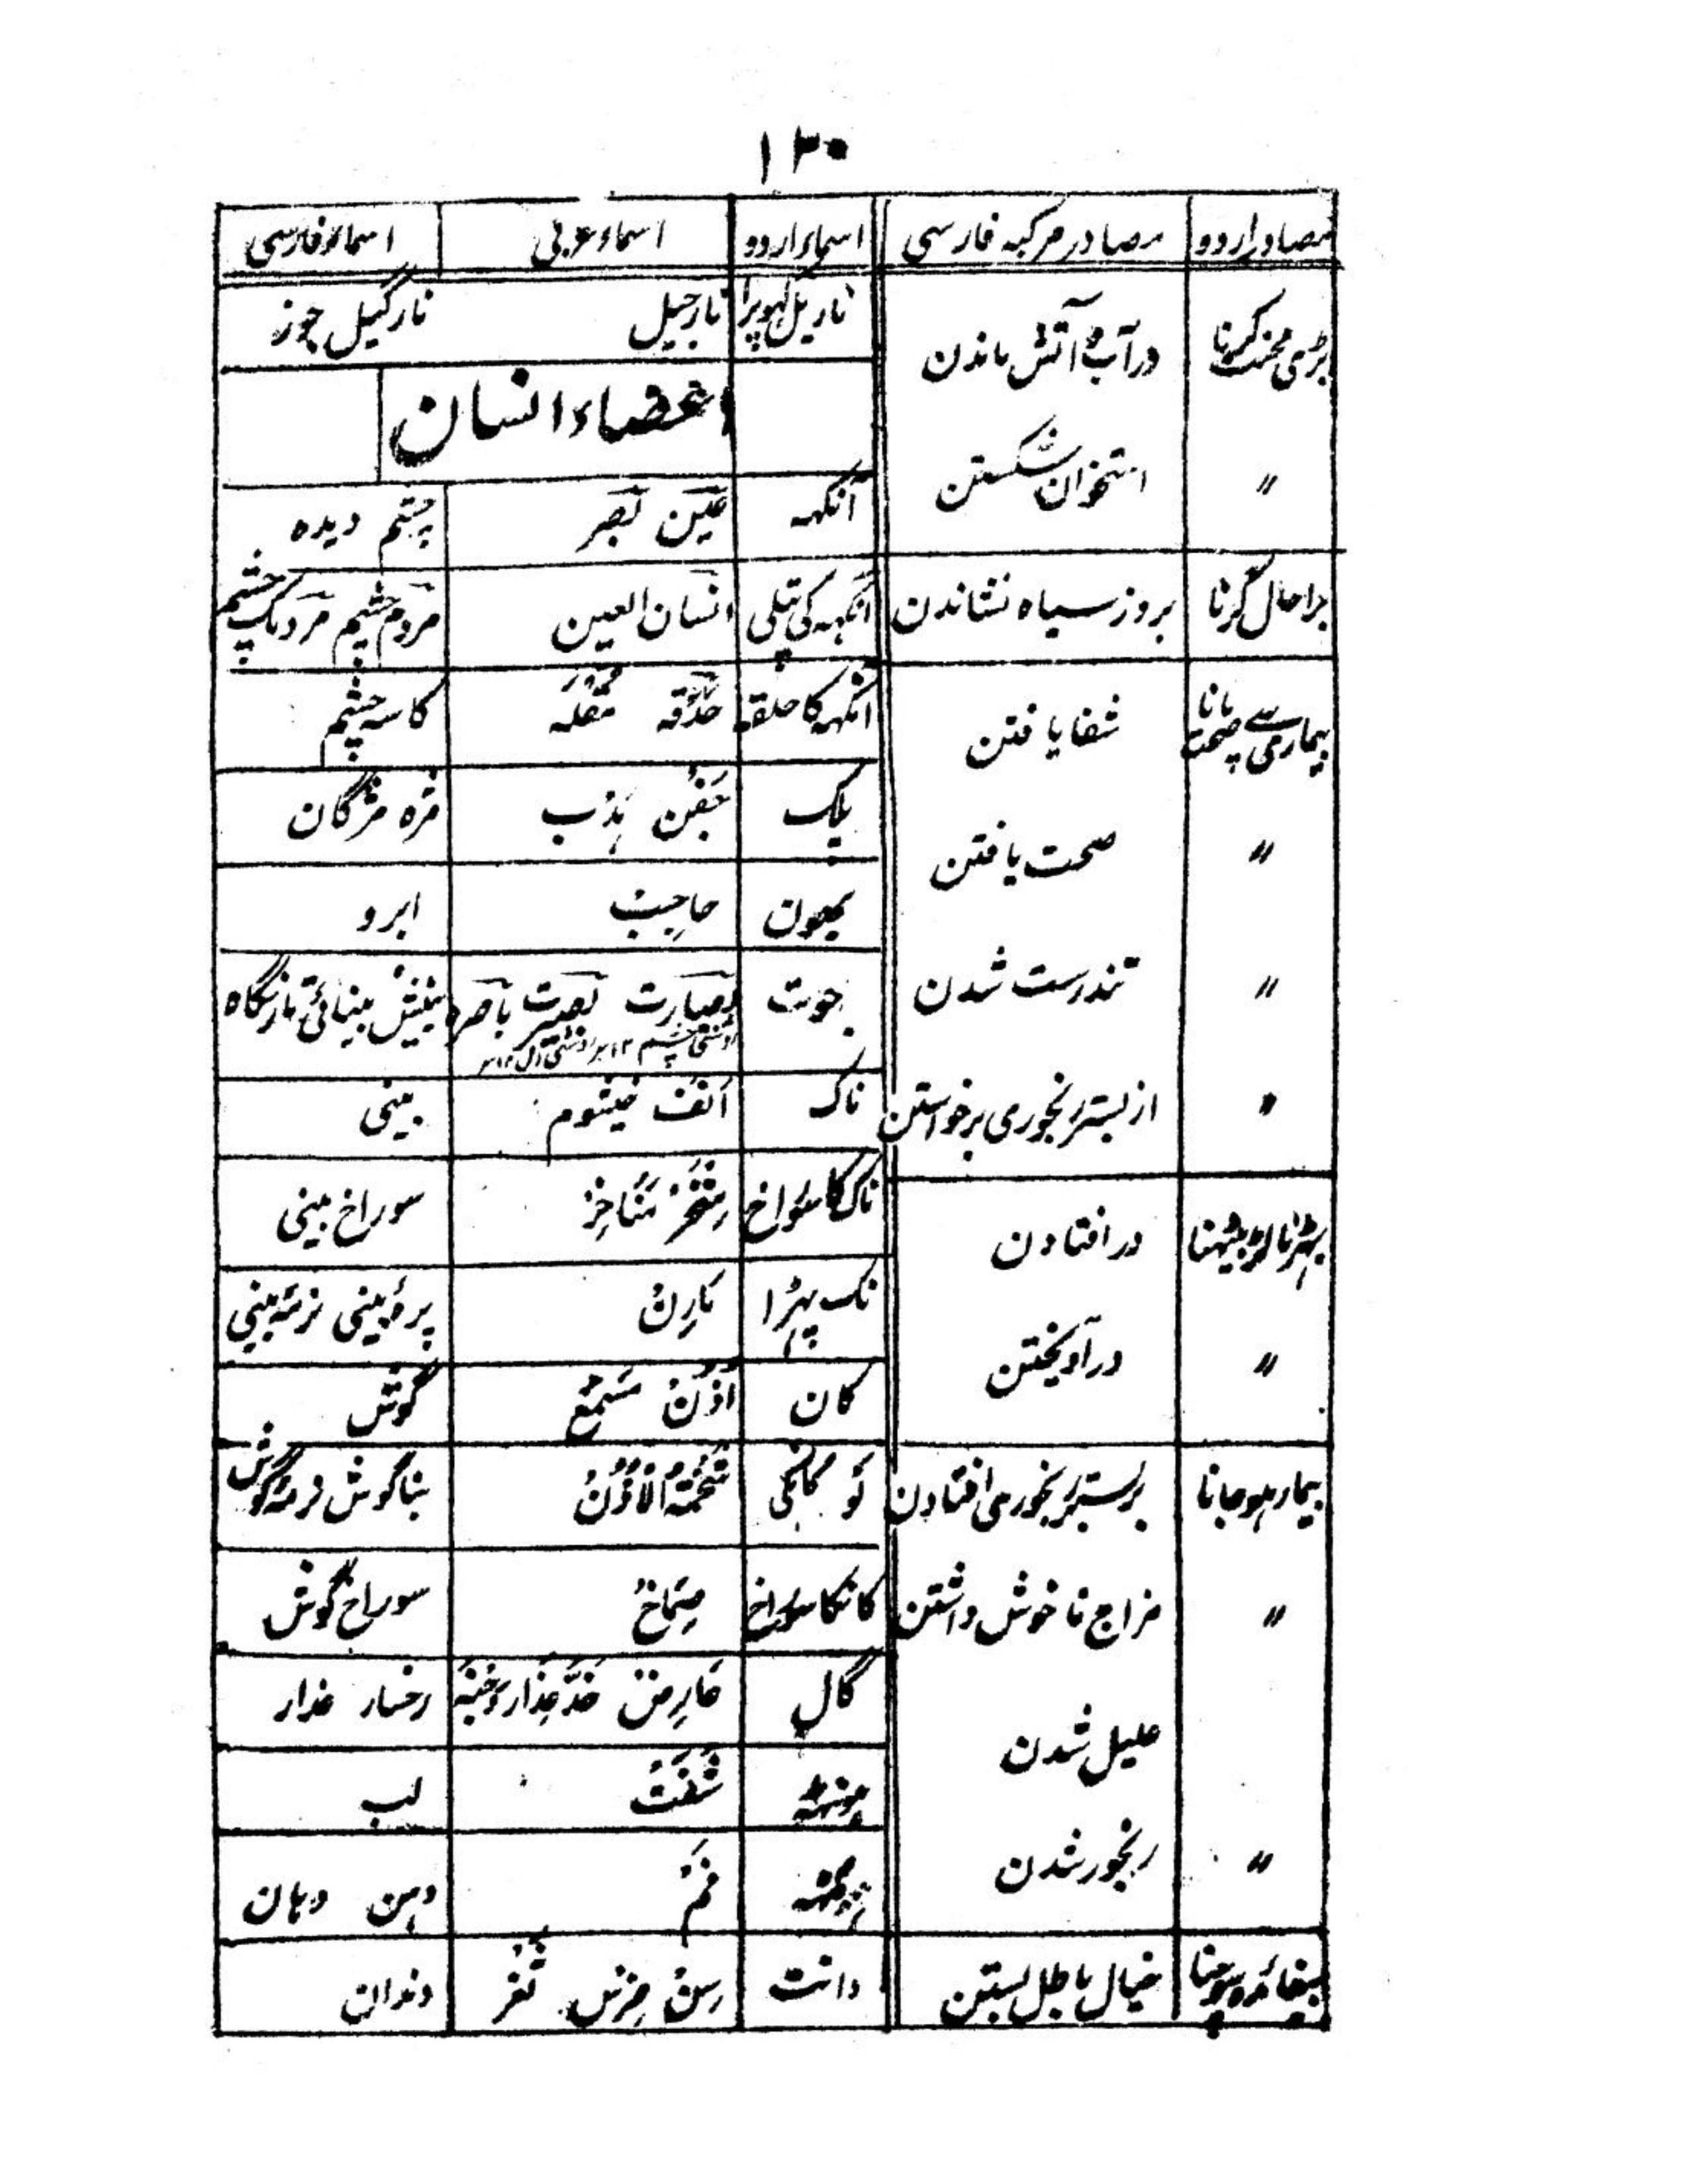 ۱۲۰
مصادر اردو | مصادر مرکبہ فارسی | اسماء اردو | اسماء عربی | اسماء فارسی
بڑی محنت کرنا | در آب و آتش ماندن
〃 | استخوان شکستن
برا حال کرنا | بروز سیاہ نشاندن
بیماری سے صحت پانا | شفا یافتن
〃 | صحت یافتن
〃 | تندرست شدن
〃 | از بستر رنجوری برخواستن
بھڑنا لڑ بیٹھنا | در افتادن
〃 | در آویختن
بیمار ہو جانا | بر بستر رنجوری افتادن
〃 | مزاج ناخوش داشتن
علیل شدن
〃 | رنجور شدن
بیفائدہ سوچنا | خیال باطل بستن
ناریل کھوپرا | نارجیل | نارگیل جوز
اعضاء انسان
آنکہہ | عَین بَصَر | چشم دیدہ
آنکہہ کی پتلی | انسان العین | مردم چشم مردمک چشم
آنکہہ کا حلقہ | حَدَقَہ مُقْلَہ | کاسہ چشم
پلک | جَفْن ہُدْب | مژہ مژگان
بھون | حاجِبْ | ابرو
جوت | بصارت بصیرت باصرہ | بینش بینائی نگاہ
ناک | اَنْف خیشوم | بینی
ناک کا سوراخ | مِنْخَرْ مَنَاخِرْ | سوراخ بینی
نک پہڑا | مَارِنْ | پرۂ بینی نرمۂ بینی
کان | اُذُنْ سَمْعْ | گوش
لَو کانکی | شَحْمَۃُ الْاُذُنْ | بناگوش نرمۂ گوش
کانکا سوراخ | صِمَاخْ | سوراخ گوش
گال | عَارِض خَدّ عِذَار وَجْنَہ | رخسار عذار
ہونٹھ | شَفَتْ | لب
مونہہ | فَمْ | دہن دہان
دانت | سِنْ ضِرْس ثَغْر | دندان